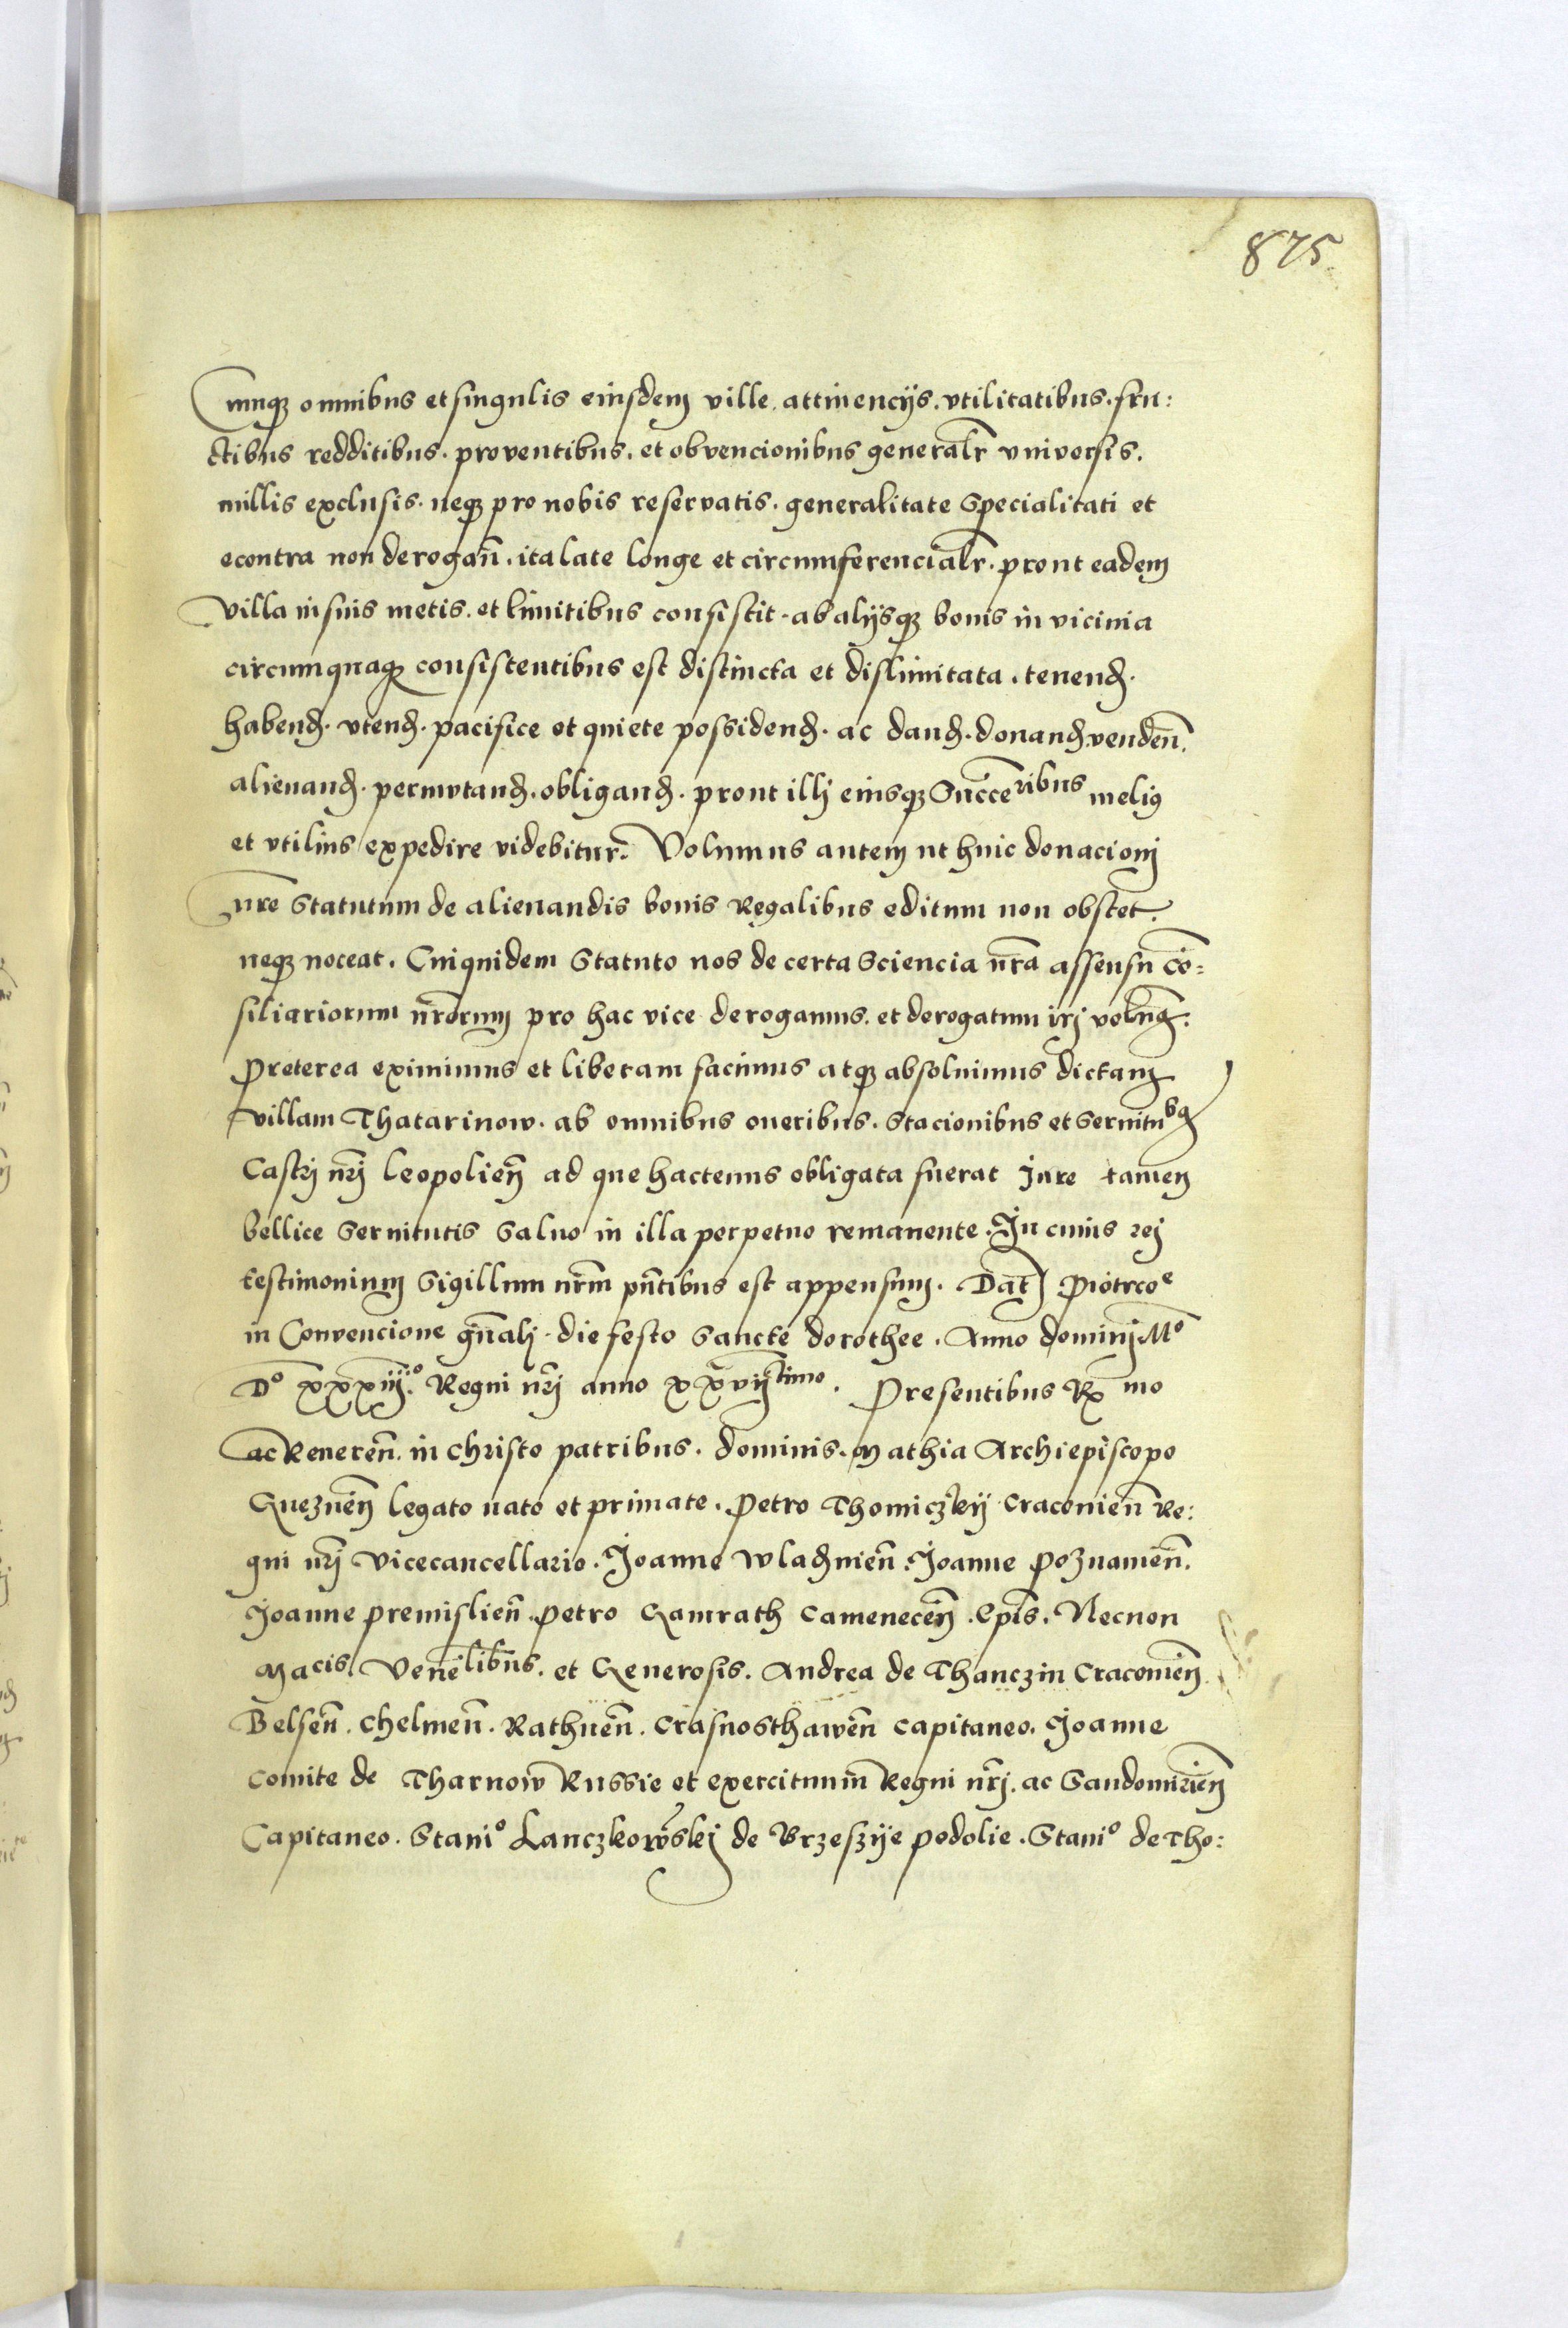 875
Cumqꝫ omnibus et singulis eiusdem ville attinencijs. vtilitatibus. fru:
ctibus redditibus. proventibus. et obvencionibus generalr̄ vniversis.
nullis exclusis. neqꝫ pro nobis reservatis. generalitate specialitati et
econtra non derogan̄. ita late longe et circumferencialr̄. prout eadem
villa in suis metis. et limitibus consistit. ab alijsqꝫ bonis in vicinia
circumquaqꝫ consistentibus est distincta et dislimitata. tenend̄.
habend̄. vtend̄. pacifice et quiete possidend̄. ac dand̄. donand̄. venden̄.
alienand̄. permutand̄. obligand̄. prout illj eiusqꝫ Succeribus meliꝯ
et vtilius expedire videbitur. Volumus autem ut huic donacionj
nr̄e Statutum de alienandis bonis Regalibus editum non obstet.
neqꝫ noceat. Cuiquidem Statuto nos de certa Sciencia nr̄a assensu cō:
siliariorum nr̄orum pro hac vice derogamus. et derogatum irj volumꝯ.
Preterea eximimus et liberam facimus atqꝫ absoluimus dictam
villam Thatarinow. ab omnibus oneribus. Stacionibus et Seruitubꝯ
Castrj nr̄j Leopolien̄ ad que hactenus obligata fuerat Jure tamen
bellice Seruitutis Saluo in illa perpetuo remanente. In cuius rej
testimonium Sigillum nr̄m pn̄tibus est appensum. Dat̄ Piotrcoᵉ
in Convencione gn̄alj. die festo Sancte dorothee. Anno dominj Mº
Dº xxxiiijº. Regni nr̄j anno xxvijtimo. Presentibus Rx̄mo
ac Reueren̄. in christo patribus. dominis. Mathia Archiepiscopo
Gneznen̄ legato nato et primate. Petro Thomiczkij Cracouien̄ Re:
gni nr̄j vicecancellario. Joanne Wladn̄ien̄. Joanne Poznanien̄.
Joanne premislien̄. Petro Gamrath Camenecen̄. Ep̄is. Necnon
Macis. Venelibus. et Generosis. Andrea de Thanczin Cracouien̄
Belsen̄. Chelmen̄. Rathnen̄. Crasnosthawen̄ capitaneo. Joanne
comite de Tharnow Russie et exercituum Regni nr̄j. ac Sandomirien̄
Capitaneo. Staniº Lanczkowskj de Brzeszije podolie. Staniº de Tho: